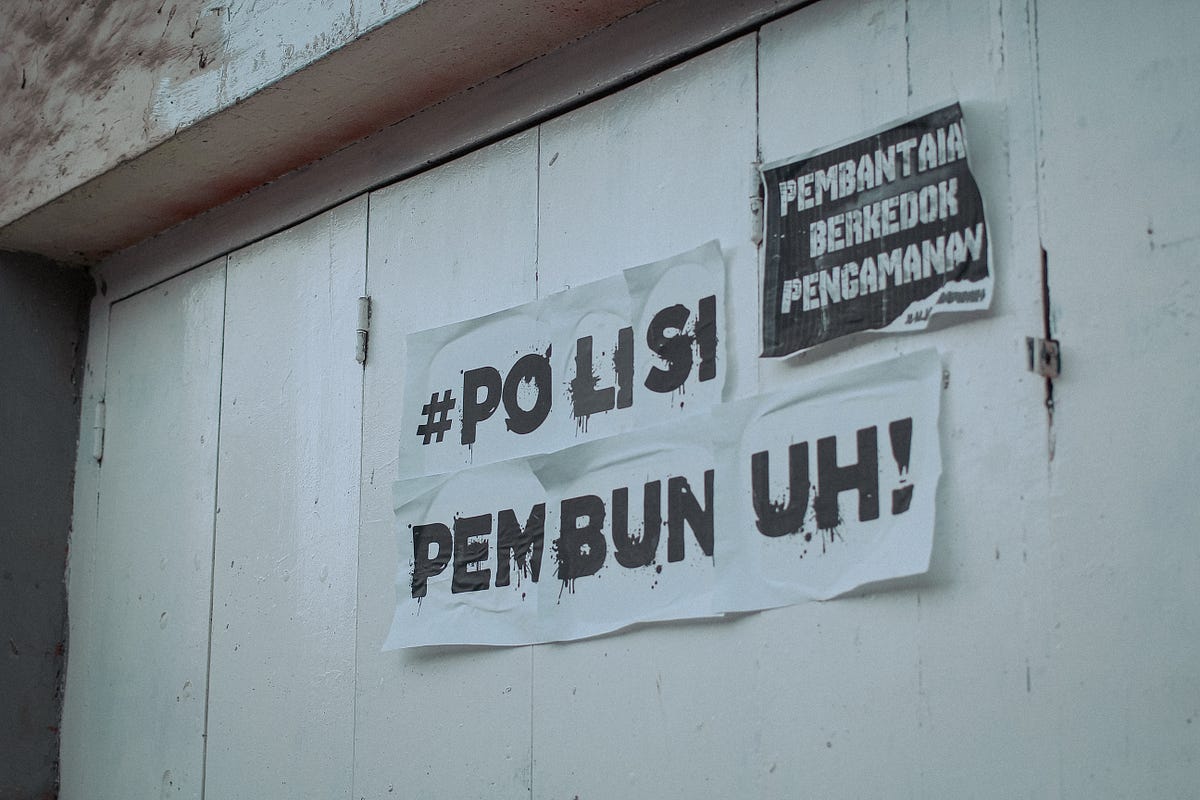 #POLISI
PEMBUNUH!
PEMBANTAIA
BERKEDOK
PENGAMANAN